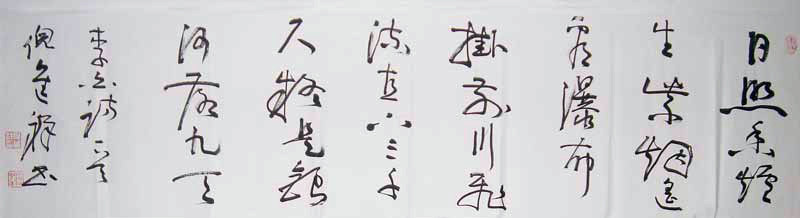 日照香爐
生紫烟遥
看瀑布
掛前川飛
流直下三千
尺疑是銀
河落九天
李白诗一首
倪 书